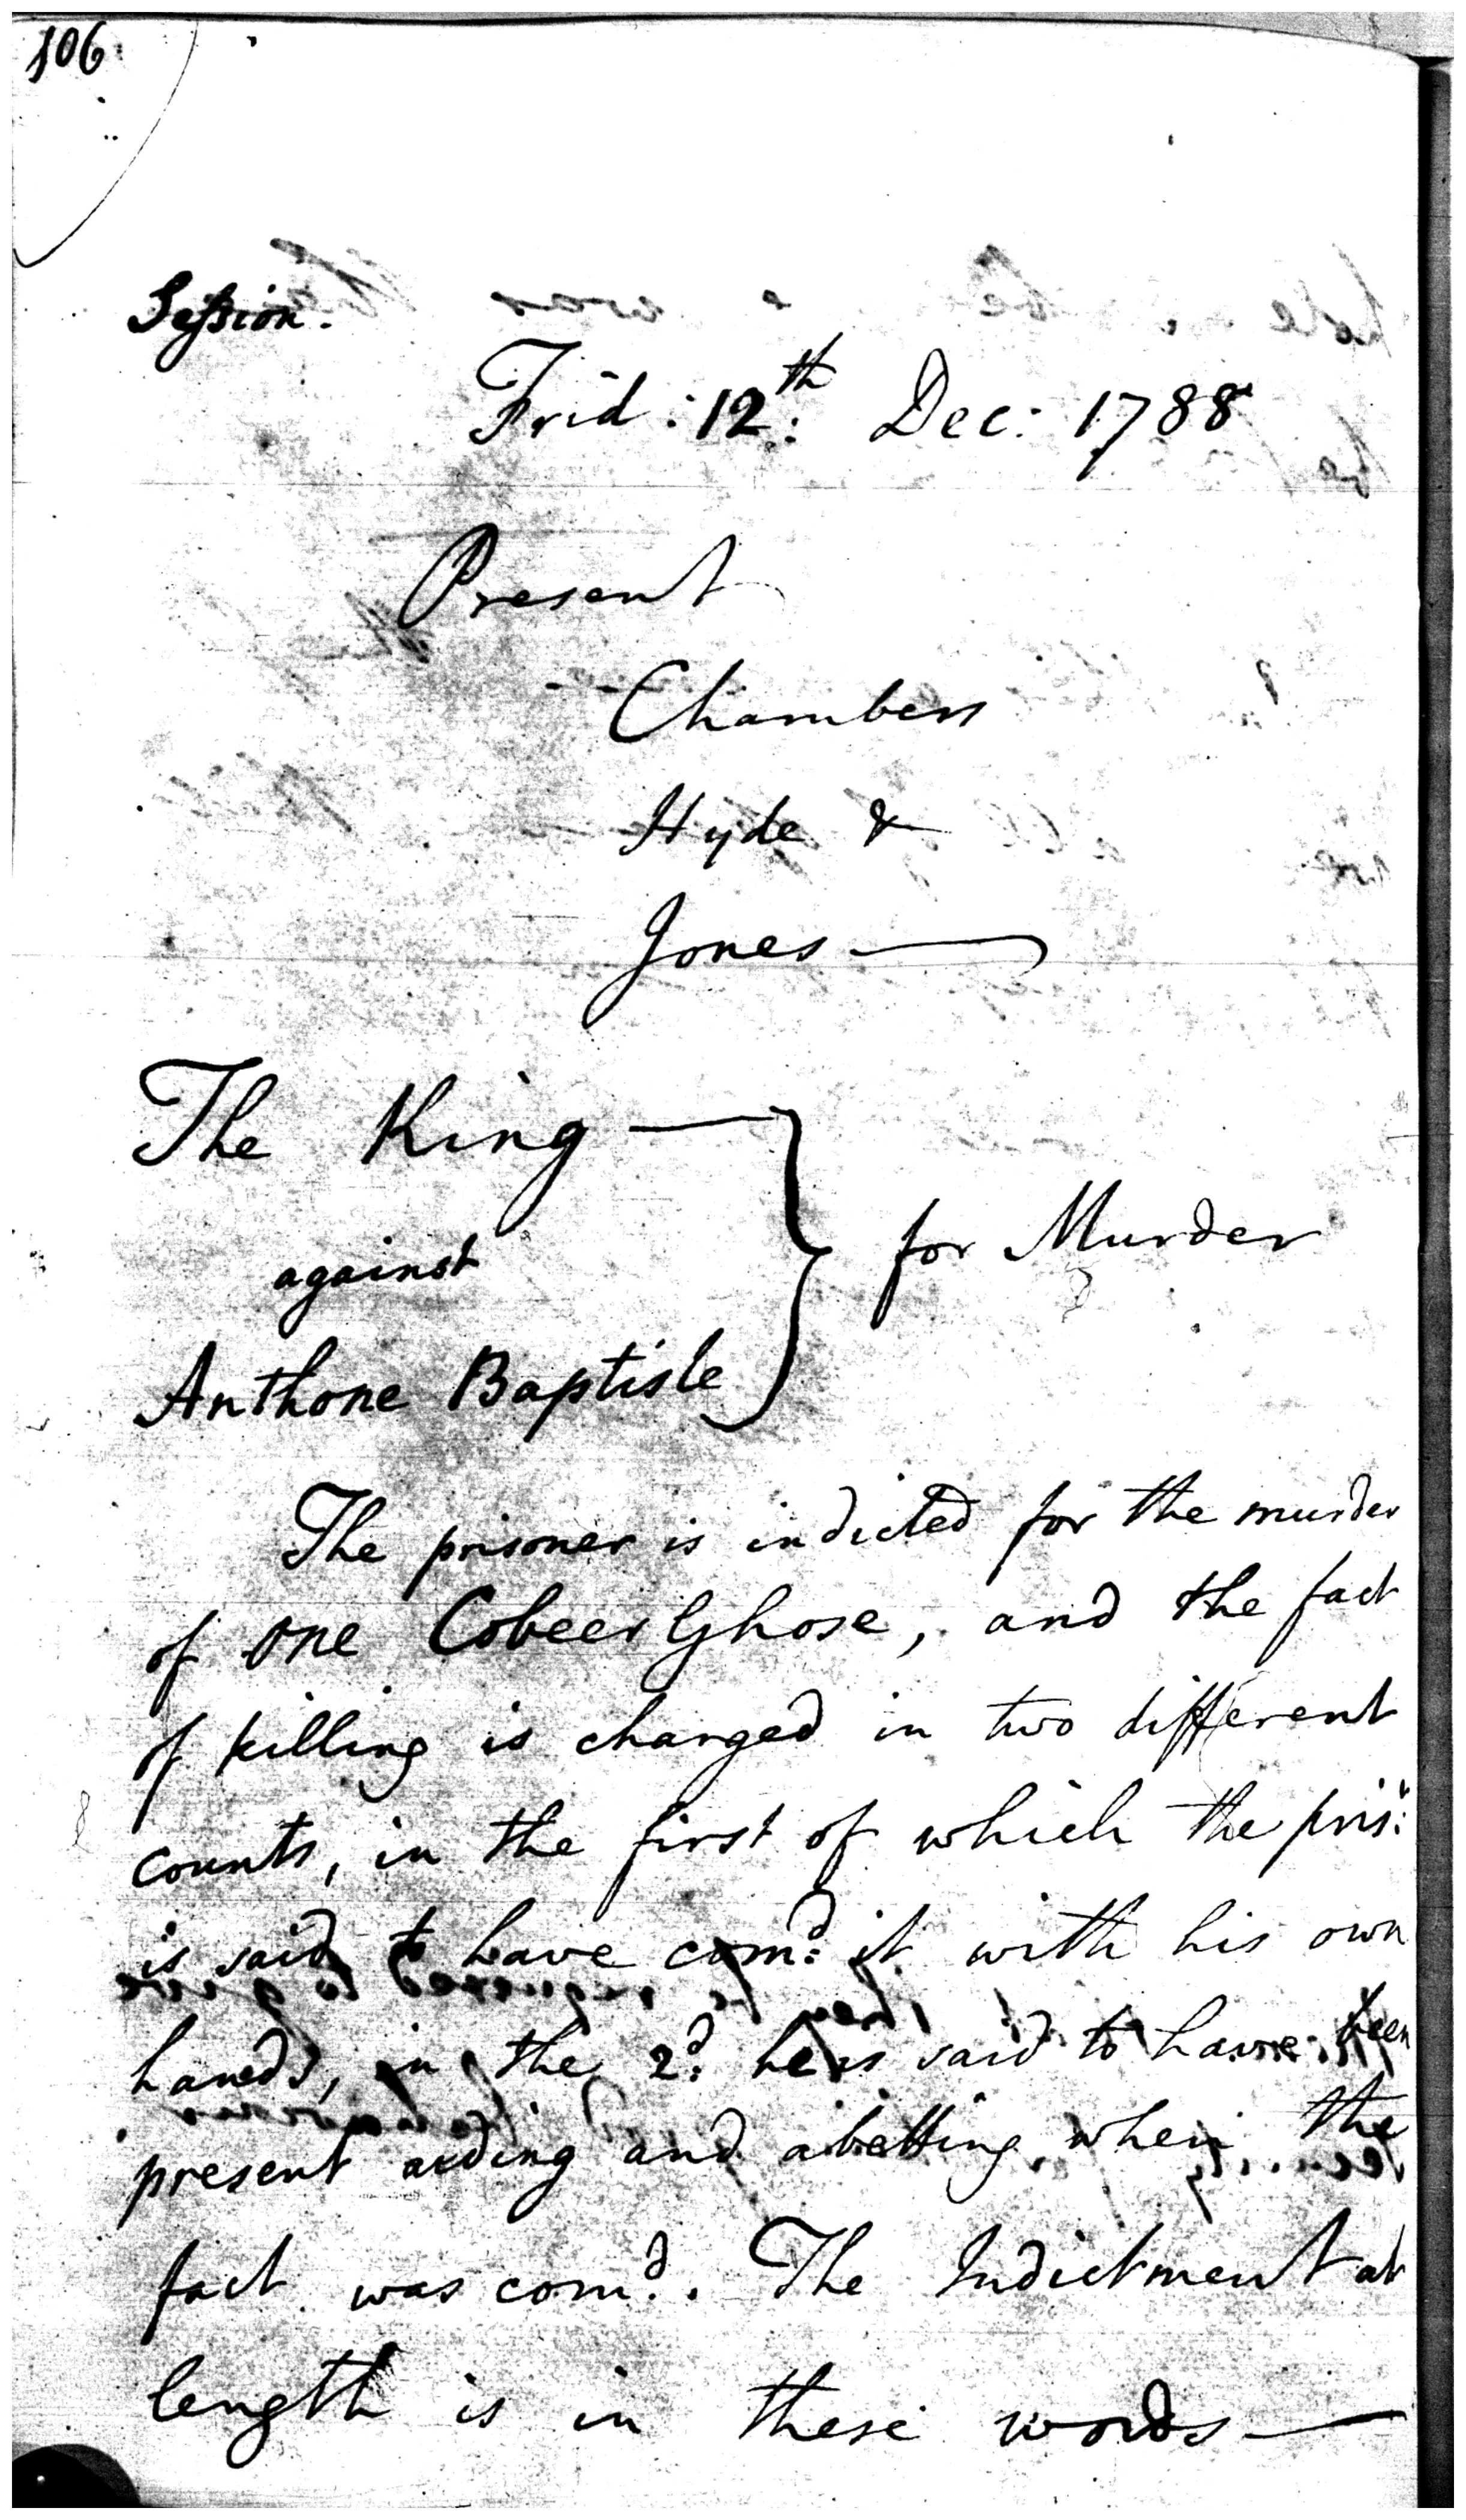 106
Session.
Frid: 12th: Dec: 1788
Present
Chambers
Hyde &
Jones
The King
against
Anthone Baptiste
for Murder
The prisoner is indicted for the murder
of one Cobeer Ghose, and the fact
of killing is charged in two different
counts, in the first of which the pris:r
is said to have com:d it with his own
hands, in the 2:d he is said to have been
present aiding and abetting when the
fact was com:d. The Indictment at
length is in these words